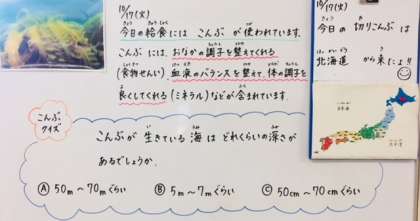 10/17(火)
今日の給食には こんぶ が 使われています。
こんぶ には、おなかの調子を整えてくれる
(食物せんい)、血液のバランスを整えて、体の調子を
良くしてくれる (ミネラル) などが 含まれています。
こんぶ
クイズ
こんぶが 生きている 海は どれくらいの 深さが
あるでしょうか。
Ⓐ 50m〜70mぐらい Ⓑ 5m〜7mぐらい Ⓒ 50cm〜70cmぐらい
10/17(火)
今日の 切りこんぶ は
北海道 から 来たよ!!